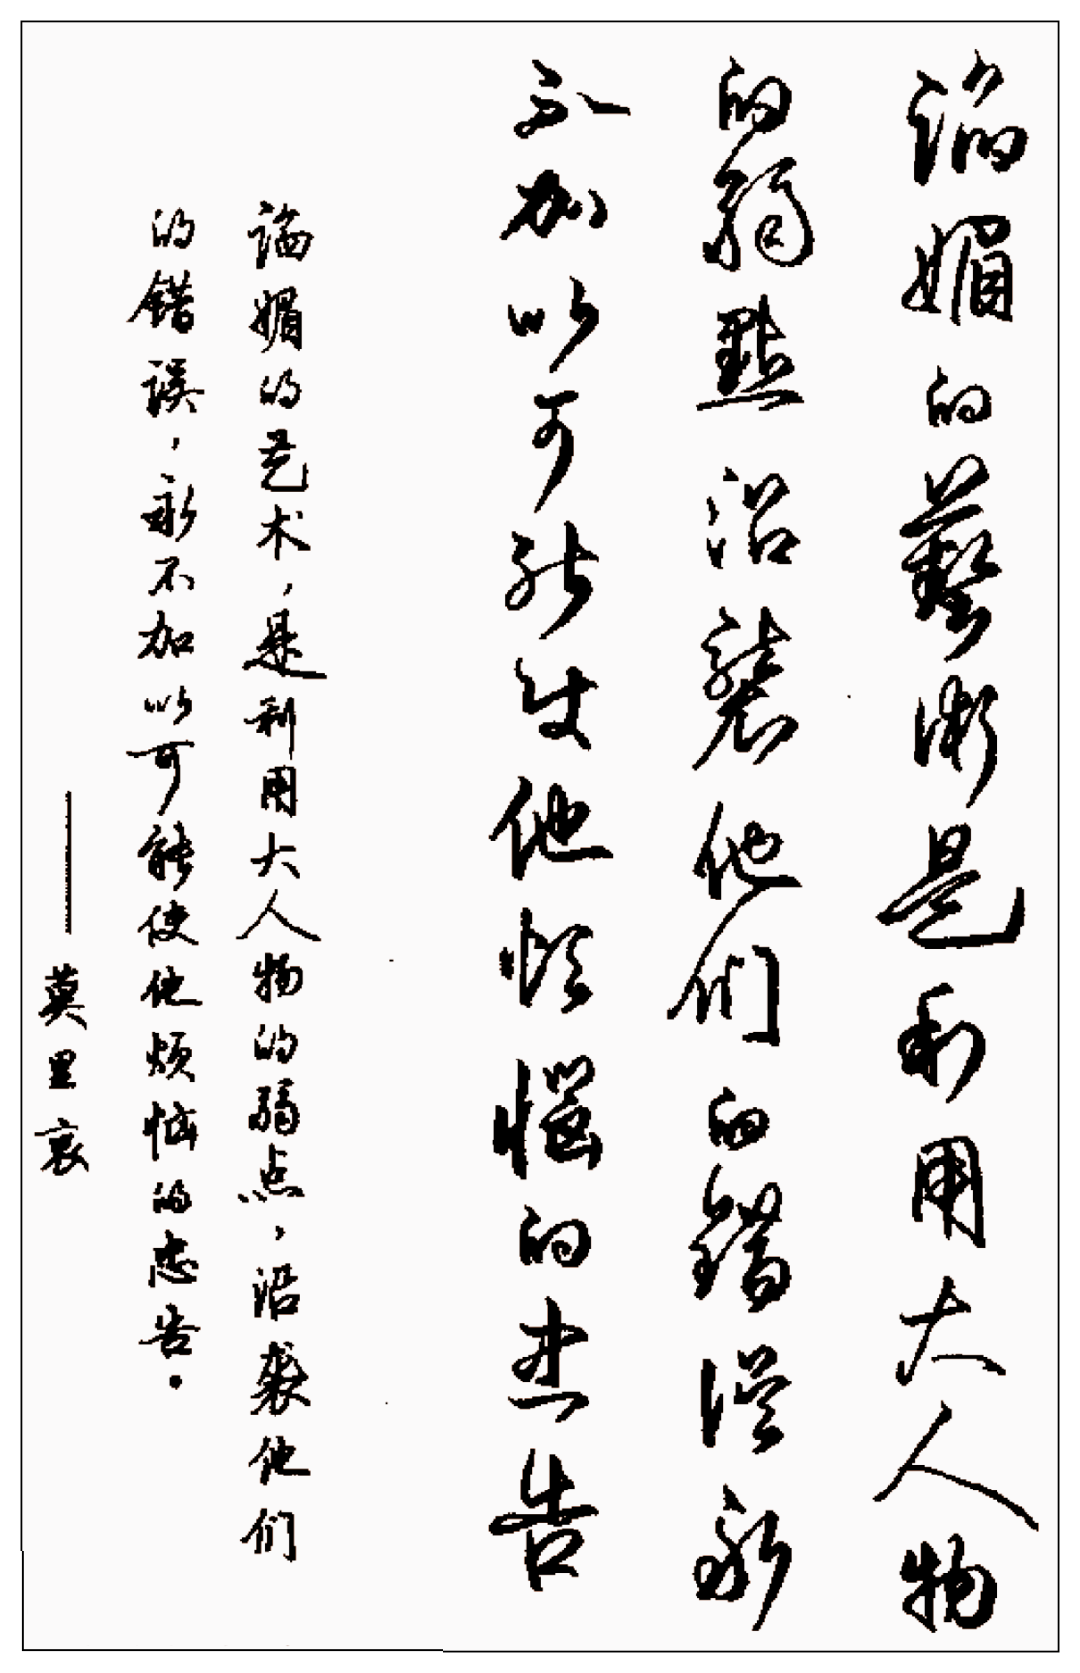 谄媚的藝術是利用大人物
的弱點沿襲他們的錯誤永
不加以可能使他煩惱的忠告
谄媚的艺术，是利用大人物的弱点，沿袭他们
的错误，永不加以可能使他烦恼的忠告。
——莫里哀